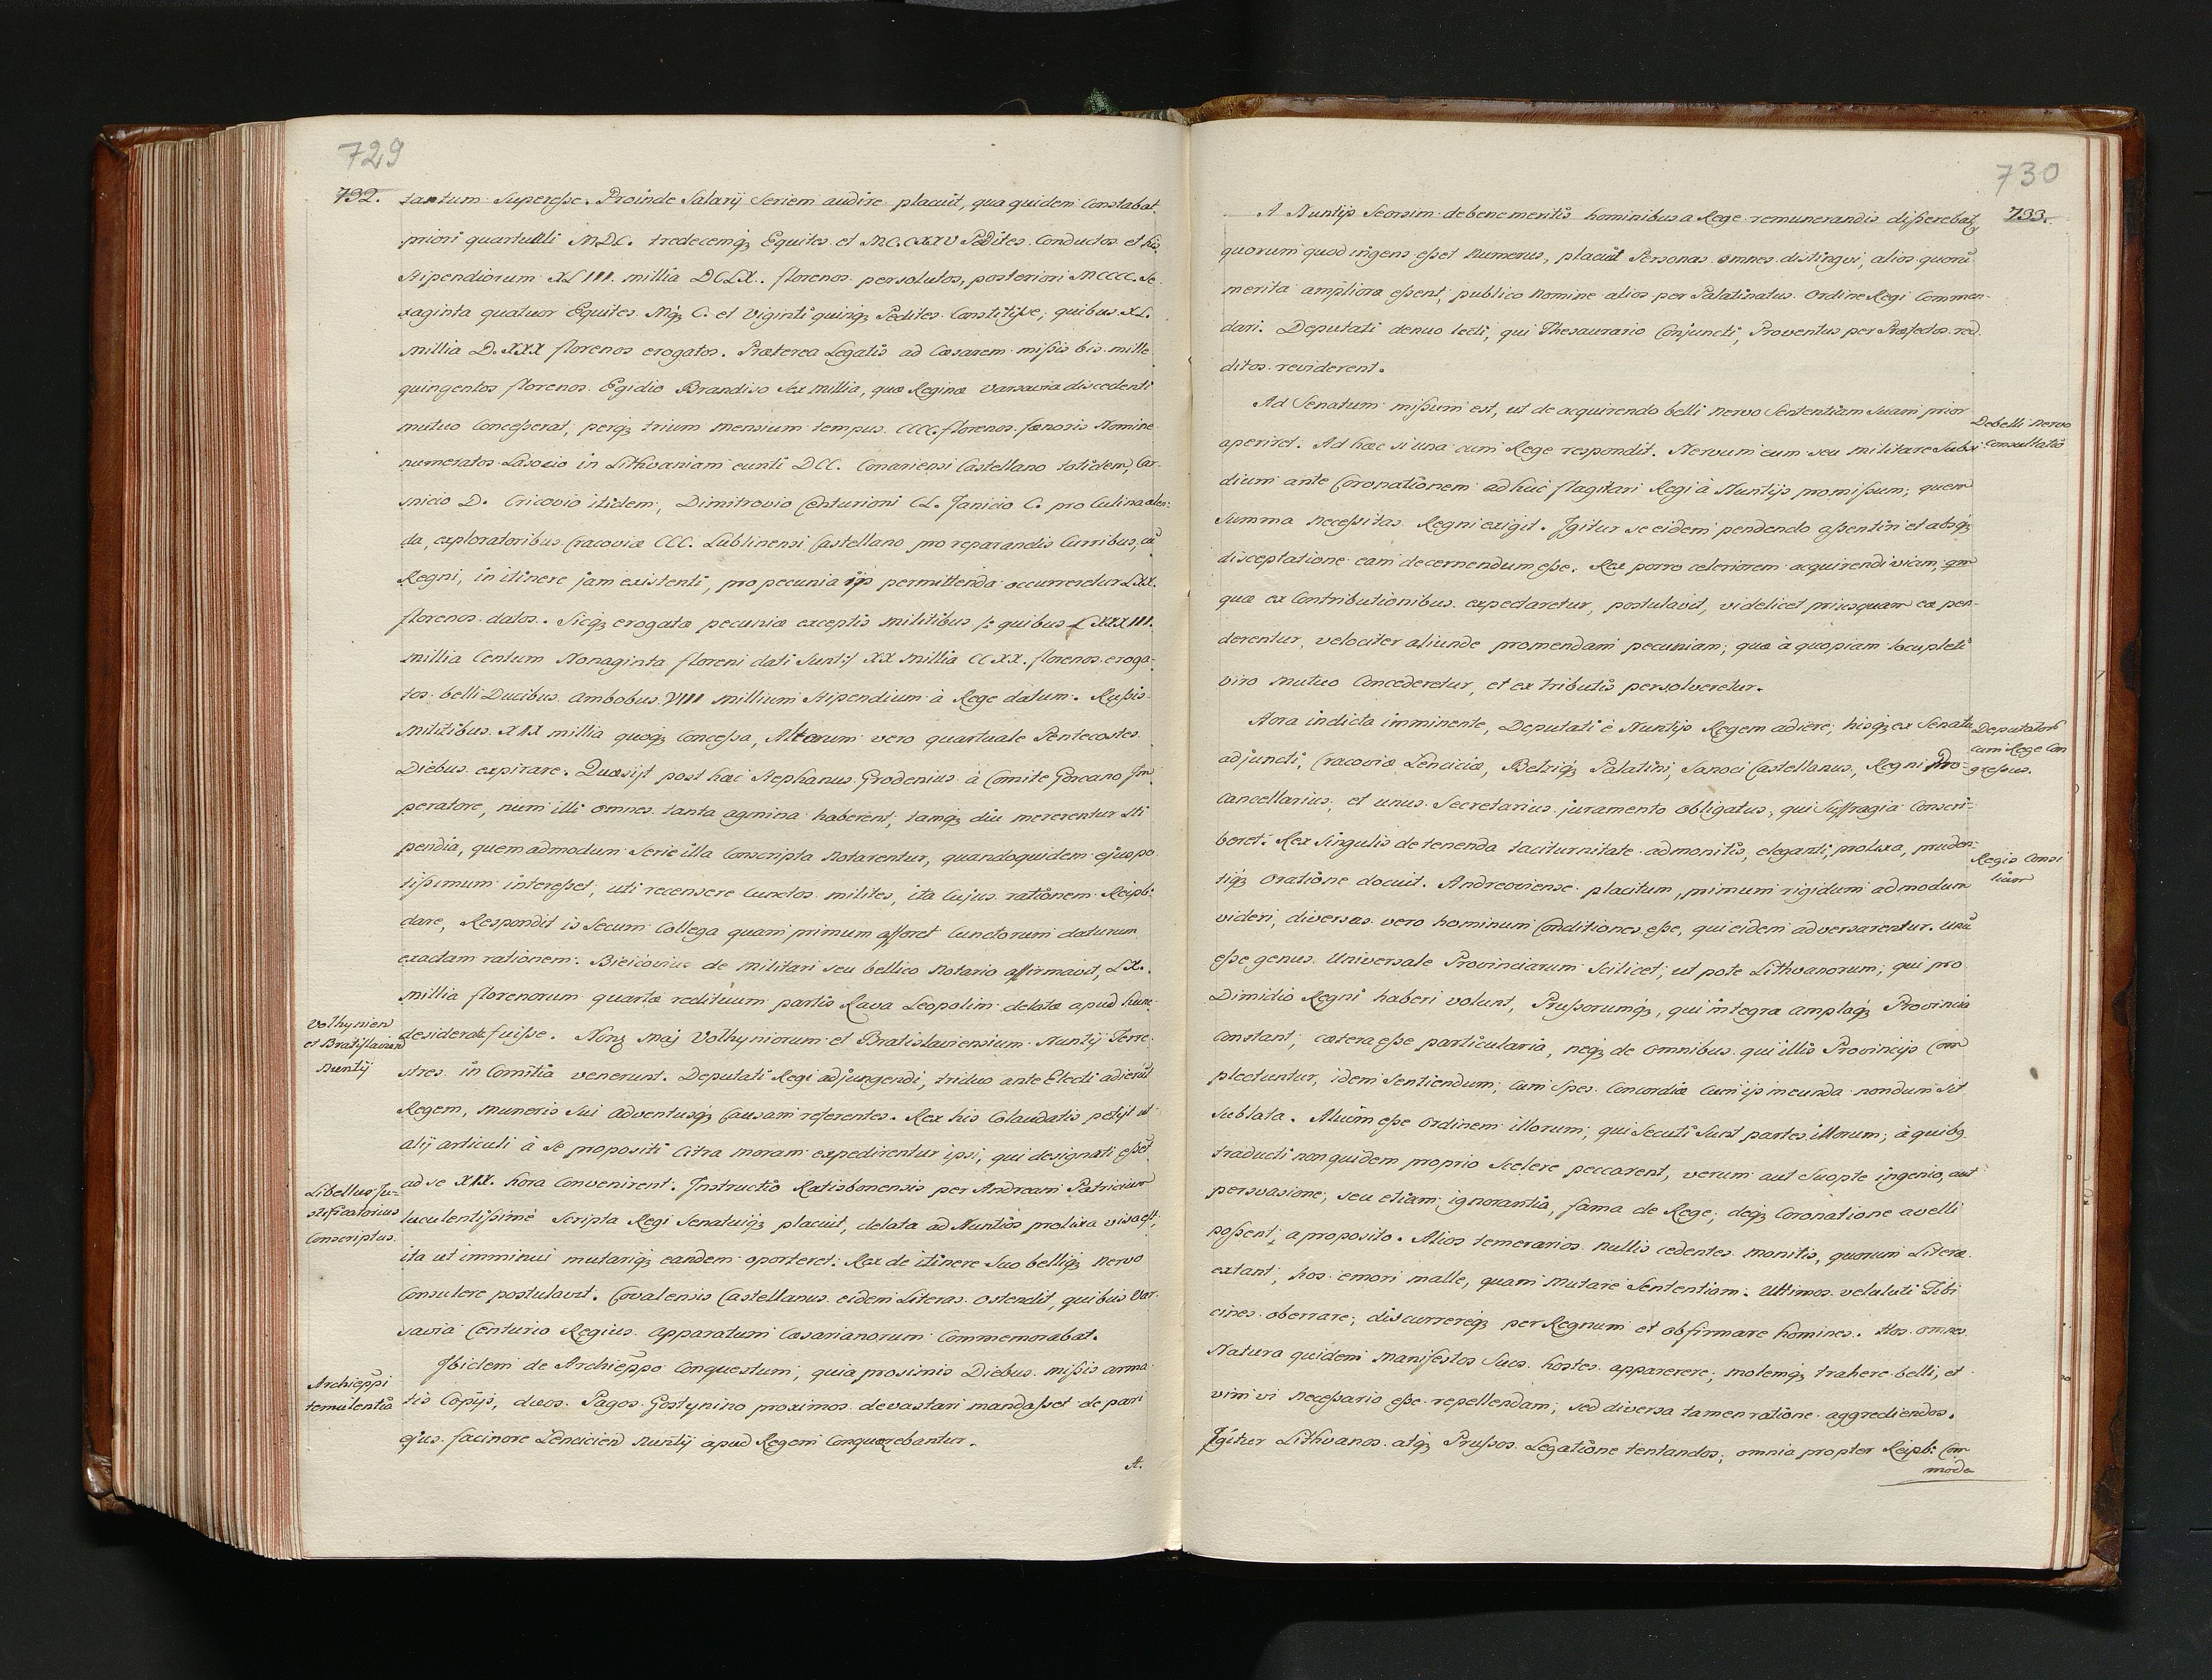 729
732.
tantum Superesse. Proinde Salarij Seriem audire placuit, qua quidem Constabat
priori quartuali MDC. tredecemq; Equites et MC. CXXV Pedites Conductos et his
Stipendiorum XLIII. millia DCLX. florenos persolutos, posteriori MCCCC. Se-
xaginta quatuor Equites Mq; C. et viginti quinq; Pedites Constitisse; quibus XL.
millia D. XXX florenos erogatos. Præterea Legatis ad Cæsarem missis bis mille
quingentos florenos Egidio Brandiso Sex millia, quæ Reginæ Varsavia discedenti
mutuo Concesserat, perq; trium mensium tempus CCCC. florenos fænoris Nomine
numeratos Lasocio in Lithvaniam eunti DCC. Conariensi Castellano totidem, Car-
snicio D. Cricovio itidem, Dimitrovio Centurioni CL. Janicio C. pro Culina alen-
da, exploratoribus Cracoviæ CCC. Lublinensi Castellano pro reparandis Curribus, cũ
Regni, in itinere jam existenti, pro pecunia ijs permittenda occurreretur LXX.
florenos datos. Sicq; erogatæ pecuniæ exceptis militibus /: quibus LXXXIII.
millia Centum Nonaginta floreni dati Sunt :/ XX millia CCXX. florenos eroga-
tos belli Ducibus ambobus VIII millium Stipendium à Rege datum. Russis
militibus XIX millia quoq; Concessa, Alterum vero quartuale Pentecostes
Diebus expirare. Quæsijt post hæc Stephanus Grodenius à Comite Gorcano Im-
peratore, num illi omnes tanta agmina haberent, tamq; diu mererentur Sti
pendia, quemadmodum Serie illa Conscripta Notarentur, quandoquidem ejus po
tissimum interesset, uti recensere Cunctos milites, ita Cujus rationem Reipb:
dare, Respondit is Secum Collega quam primum afforet Cunctorum daturum
exactam rationem. Bieicovius de Militari seu bellico Notario affirmavit, LX.
millia florenorum quartæ redituum partis Rava Leopolim delatæ apud hunc
desiderata fuisse. Nonq; Maj Volhyniorum et Bratislaviensium Nuntij Terre-
stres in Comitia venerunt. Deputati Regi adjungendi, triduo ante Electi adierũt
Regem, muneris Sui adventusq; Causam referentes. Rex his Colaudatis petijt ut
alij articuli à Se propositi Citra moram expedirentur ipsi, qui designati essẽt
ad se XIX. hora Convenirent. Instructio Ratisbonensis per Andream Patricium
luculentissimè Scripta Regi Senatuiq; placuit, delata ad Nuntios prolixa visa est,
ita ut imminui mutariq; eandem oporteret. Rex de itinere Suo belliq; Nervo
Consulere postulavit. Covalensis Castellanus eidem Literas Ostendit, quibus Var-
savia Centurio Regius apparatum Cæsarianorum Commemorabat.
Ibidem de Archiepp̃o Conquestum, quia proximis Diebus missis arma
tis Copijs, duos Pagos Gostynino proximos devastari mandasset de pari
ejus facinore Lencicien Nuntij apud Regem Conquerebantur.
A.
Volhynien
et Bratislavien
Nuntij
Libellus Ju-
stificatorius
Conscriptus.
Archiepp̃i
temulentia
730
733.
A Nuntijs Seorsim de bene meritis hominibus a Rege remunerandis disserebat,
quorum quod ingens esset Numerus, placuit Personas omnes distingvi, alios quorũ
merita ampliora essent, publico Nomine alios per Palatinatus Ordine Regi Commen-
dari. Deputati denuo lecti, qui Thesaurario Conjuncti, Proventus per Præfectos red-
ditos reviderent.
Ad Senatum missum est, ut de acquirendo belli Nervo Sententiam Suam prior
aperiret. Ad hæc si una cum Rege respondit. Nervum eum seu militare Subsi-
dium ante Coronationem adhuc flagitari Regi à Nuntijs promissum; quem
Summa Necessitas Regni exigit. Igitur se eidem pendendo assentiri et absq;
disceptatione eam decernendum esse. Rex porro celeriorem acquirendi viam, qm
quæ ex Contributionibus expectaretur, postulavit, videlicet priusquam ea pen-
derentur, velociter aliunde promendam pecuniam; quæ à quopiam locupleti
viro Mutuo Concederetur, et ex tributis persolveretur.
Hora indicta imminente, Deputati è Nuntijs Regem adiere, hisq; ex Senatu
adjuncti, Cracoviæ Lenciciæ, Belziq; Palatini, Sanoci Castellanus, Regni Pro-
cancellarius, et unus Secretarius juramento obligatus, qui Suffragia Conscri-
beret. Rex Singulis de tenenda taciturnitate admonitis, eleganti, prolixa, pruden-
tiq; Oratione docuit. Andreoviense placitum, primum rigidum admodum
videri, diversas vero hominum Conditiones esse, qui eidem adversarentur. Unũ
esse genus Universale Provinciarum Scilicet, ut pote Lithvanorum, qui pro
Dimidio Regni haberi volunt, Prussorumq;, qui integra amplaq; Provincia
Constant, cætera esse particularia, neq; de omnibus qui illis Provincijs Com
plectuntur, idem Sentiendum, Cum Spes Concordiæ Cum ijs ineunda nondum Sit
Sublata. Alium esse Ordinem illorum, qui Secuti Sunt partes illorum, à quibq
traducti non quidem proprio Scelere peccarent, verum aut Suopte ingenio, aut
persvasione, seu etiam ignorantia, fama de Rege, deq; Coronatione avelli
possent, a proposito. Alios temerarios nullis cedentes monitis, quorum Literæ
extant, hos emori malle, quam Mutare Sententiam. Ultimos velututi Tibi
cines oberrare, discurrereq; per Regnum et obfirmare homines. Hos omnes
Natura quidem manifestos Suos hostes apparerere, molemq; trahere belli, et
vim vi necessario esse repellendam, sed diversa tamen ratione aggrediendos.
Igitur Lithvanos atq; Prussos Legatione tentandos, omnia propter Reipb: Com
moda
De belli nervo
Consultatio
Deputatorũ
cum Rege Con
gressus.
Regis Consi
lium